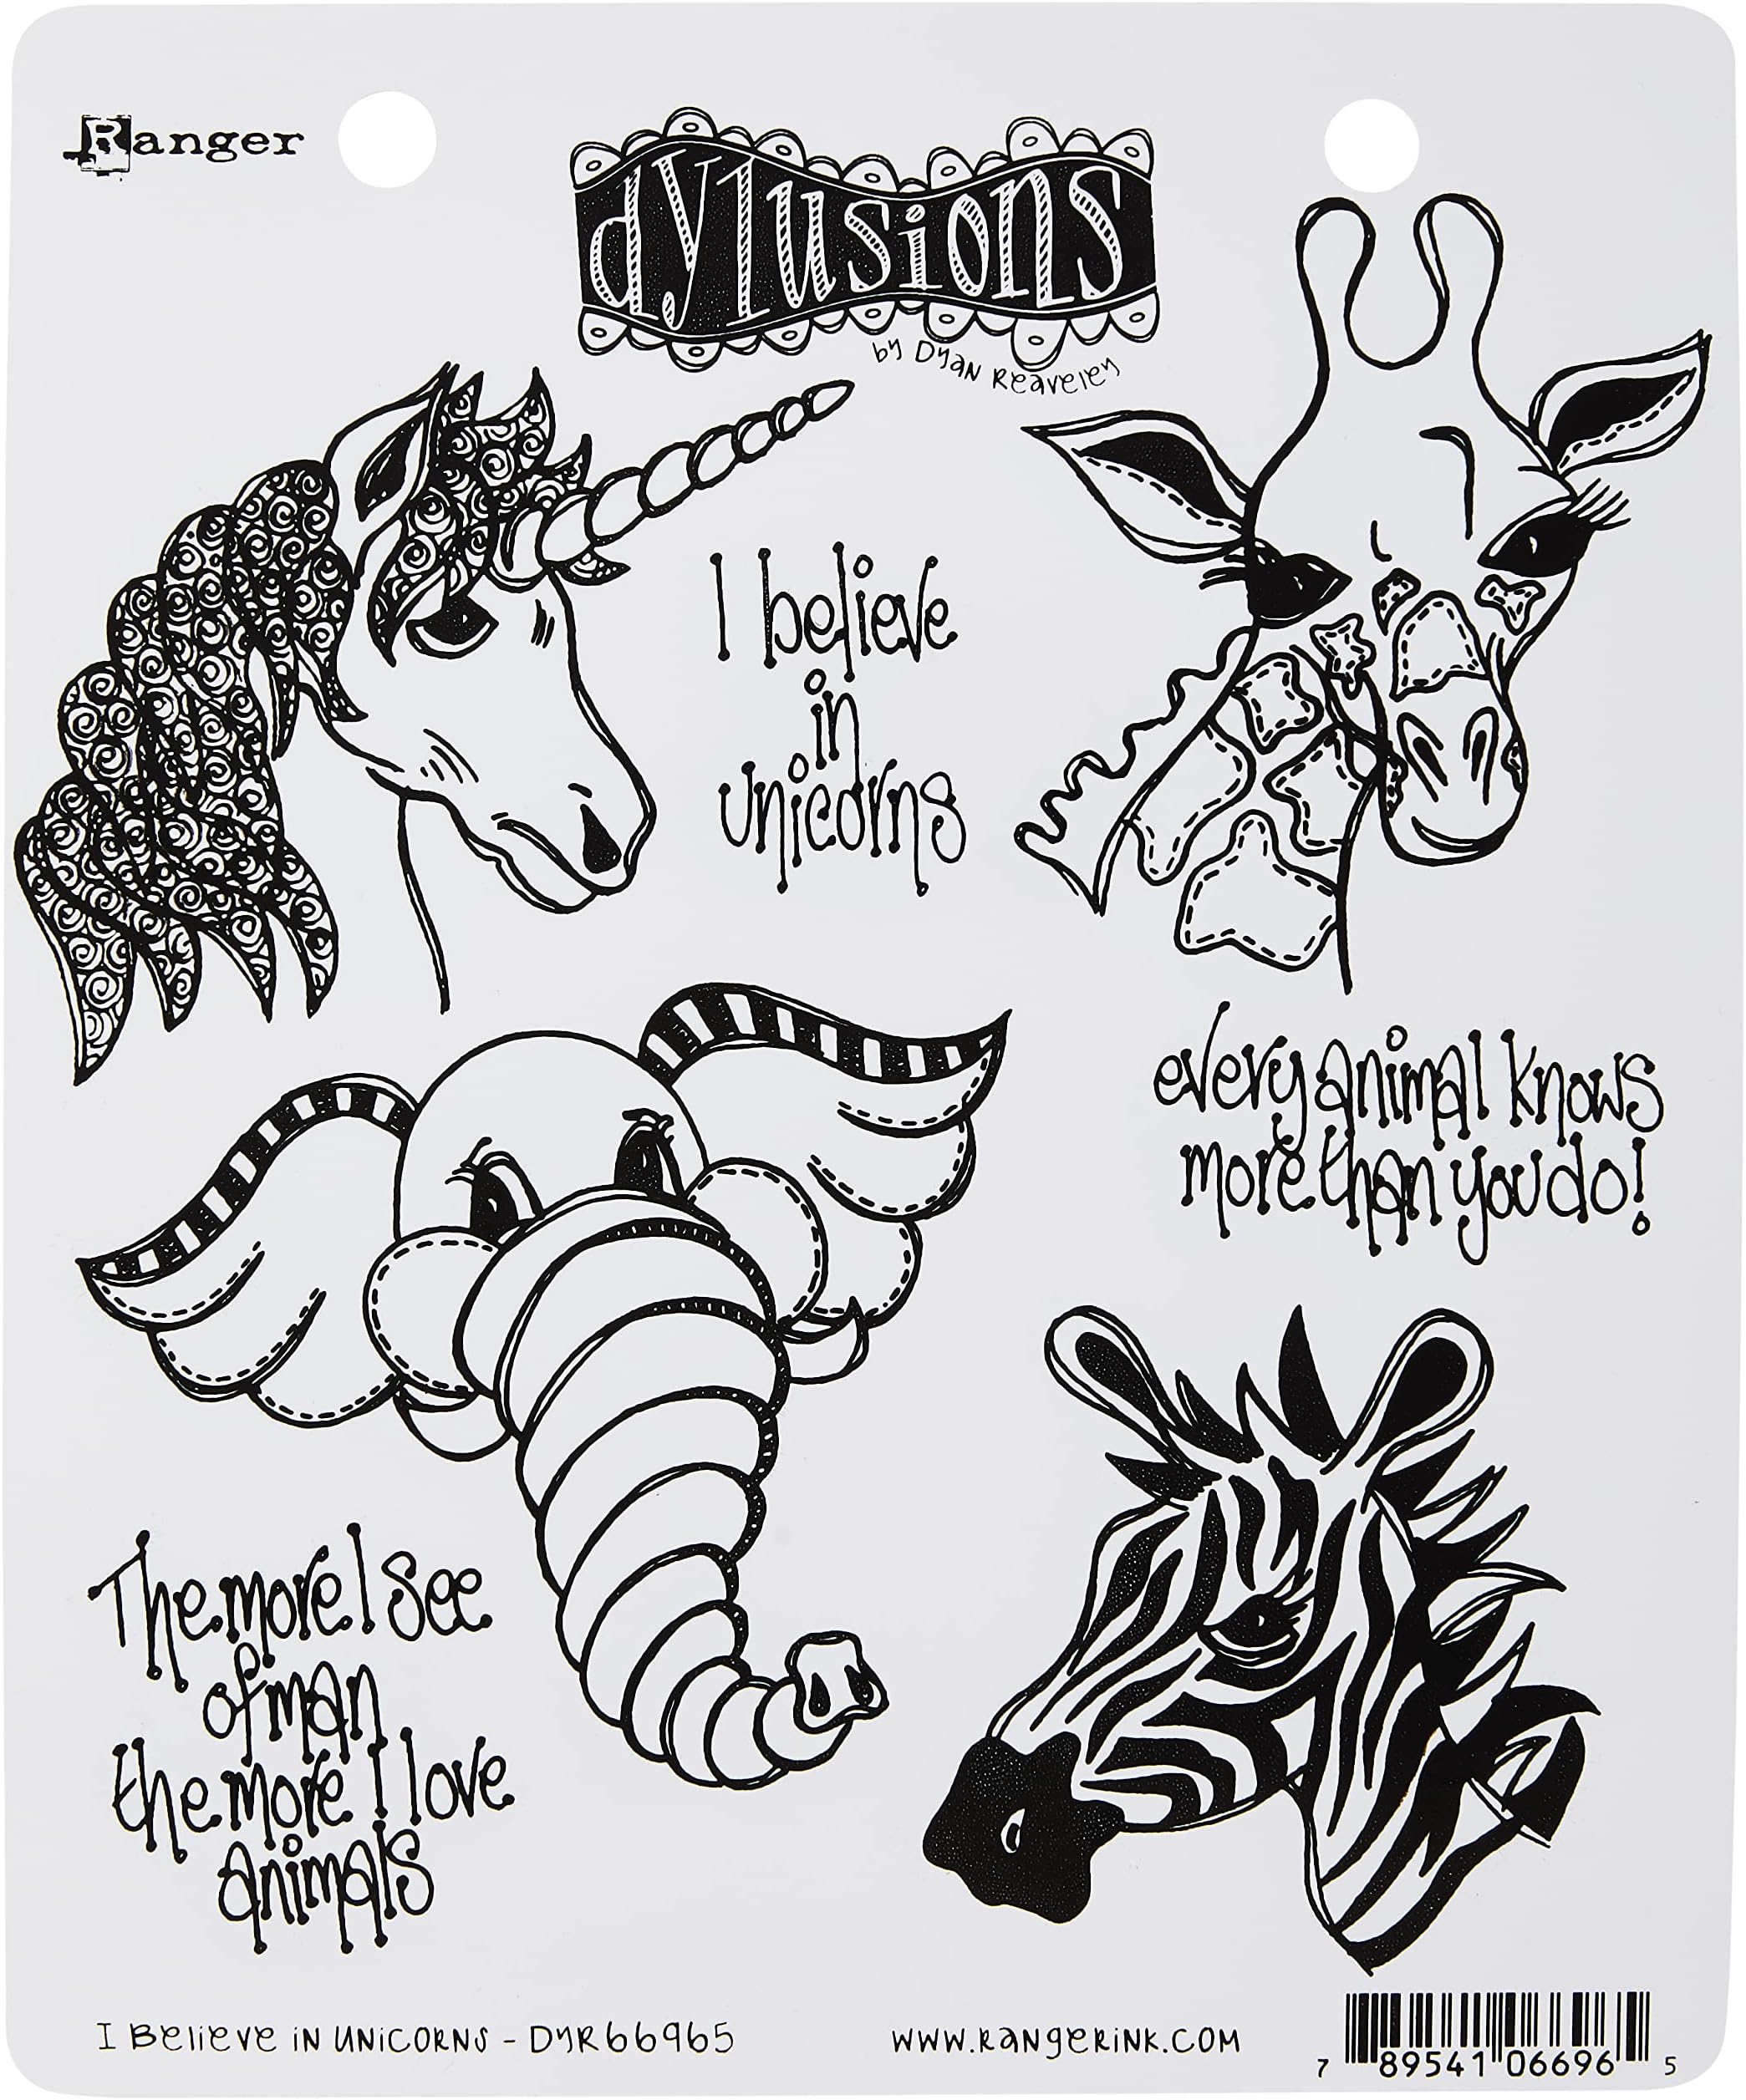 Ranger
dylusions
by Dyan Reaveley
I believe
in
unicorns
every animal knows
more than you do!
The more I see
of man
the more I love
animals
I Believe in Unicorns - DYR66965
www.rangerink.com
7 89541 06696 5